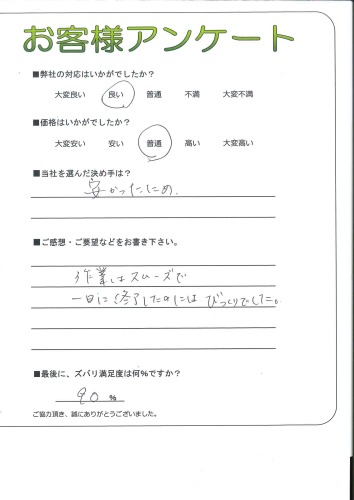 お客様アンケート
■弊社の対応はいかがでしたか？
大変良い 良い 普通 不満 大変不満
■価格はいかがでしたか？
大変安い 安い 普通 高い 大変高い
■当社を選んだ決め手は？
安かったため、
■ご感想・ご要望などをお書き下さい。
作業はスムーズで
一日に終了したのにはびっくりでした。
■最後に、ズバリ満足度は何%ですか？
90 %
ご協力頂き、誠にありがとうございました。